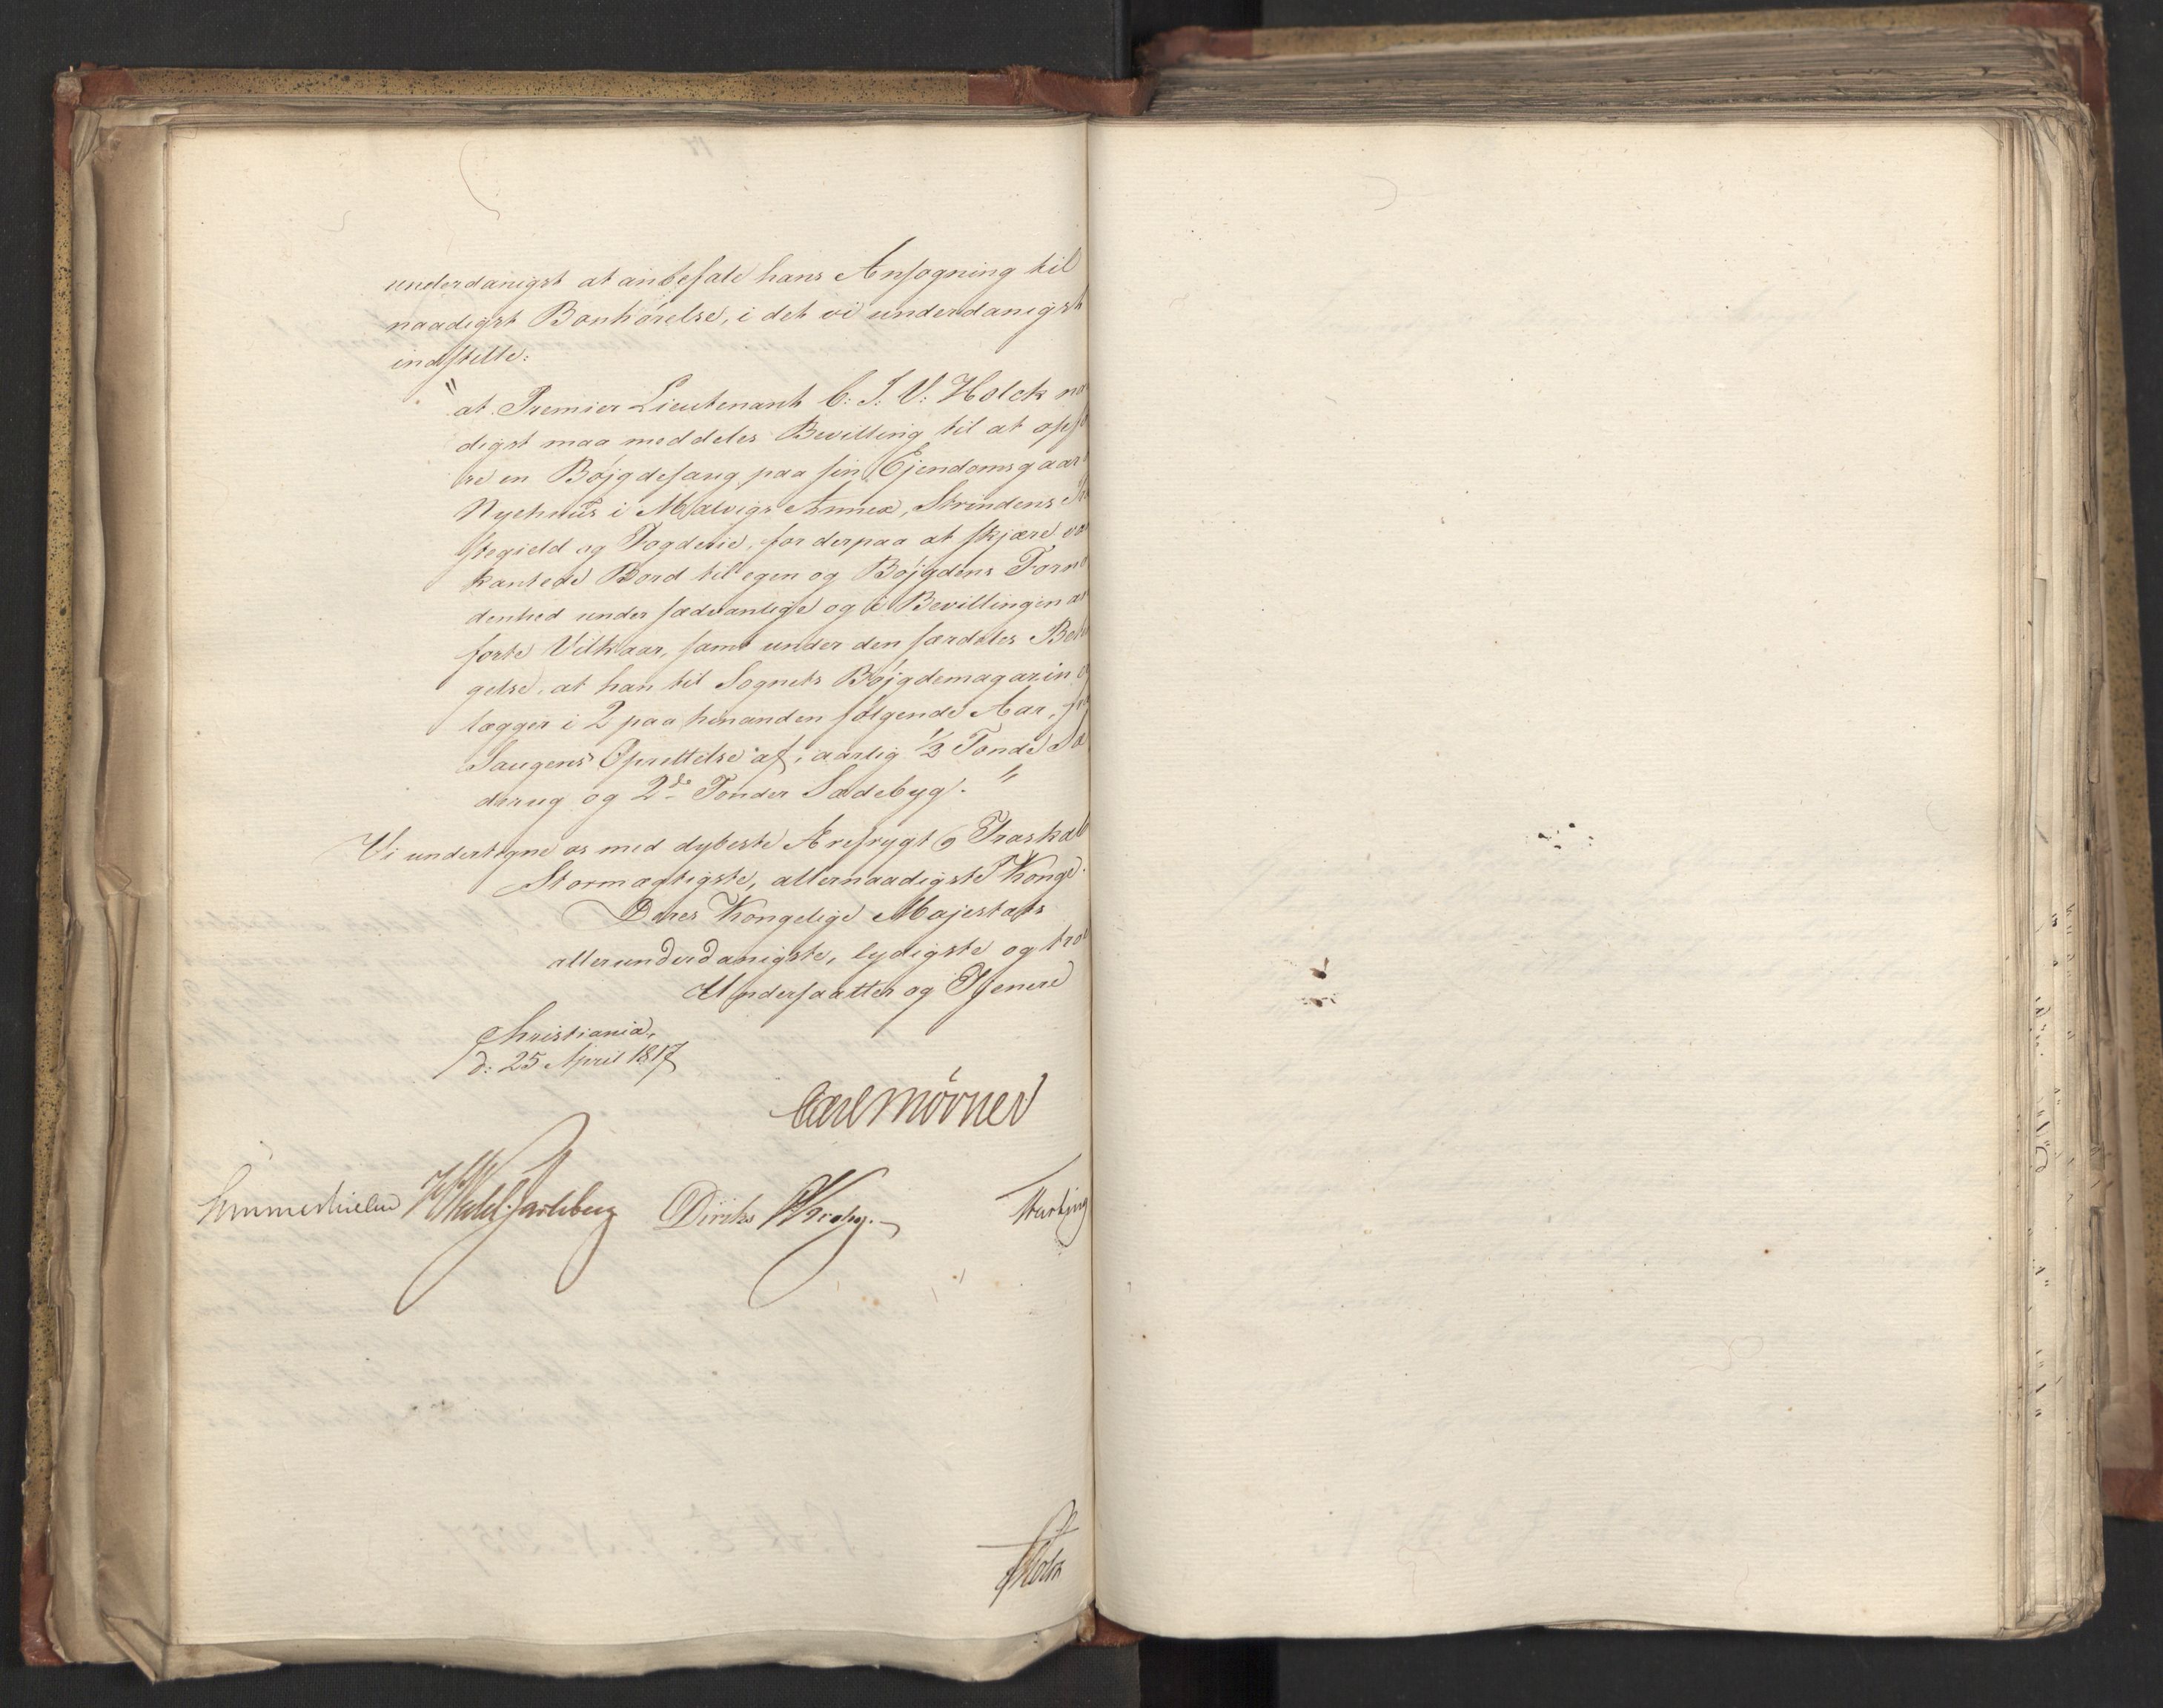 underdanigst at anbefale hans Ansøgning til
naadigst Bønhørelse, i det vi underdanigst
indstille:
"at Premier Lieutenant C: I: V: Holck na
digst maa meddeles Bevilling til at opfø
re en Bøjgdesaug paa sin Ejendomsgaard
Nyehuus i Malvigs Annex, Strindens
stegield og Fogderie, for derpaa at skjære
kantede Bord til egen og Bøjgdens Forno
denhed under sædvanlige og i Bevillingen an
førte Vilkaar, samt under den særdeles Be
gelse, at han til Sognets Bøjgdemagazin
lægger i 2 paa hinanden følgende Aar, fra
Saugens Oprettelse af, aarlig 1/2 Tønde Sæ
derug og 2de Tønder Sædebyg."
Vi undertegne os med dybeste Ærefrygt og Troskab
Stormægtigste, allernaadigste Konge.
Deres Kongelige Majestæts
allerunderdanigste, lydigste og tro
Undersaatter og Tjenere
Christiania,
d: 25 April 1817
Carl Mörner
Sommerhielm Wedel Jarlsberg Diriks Krohg.
Holst